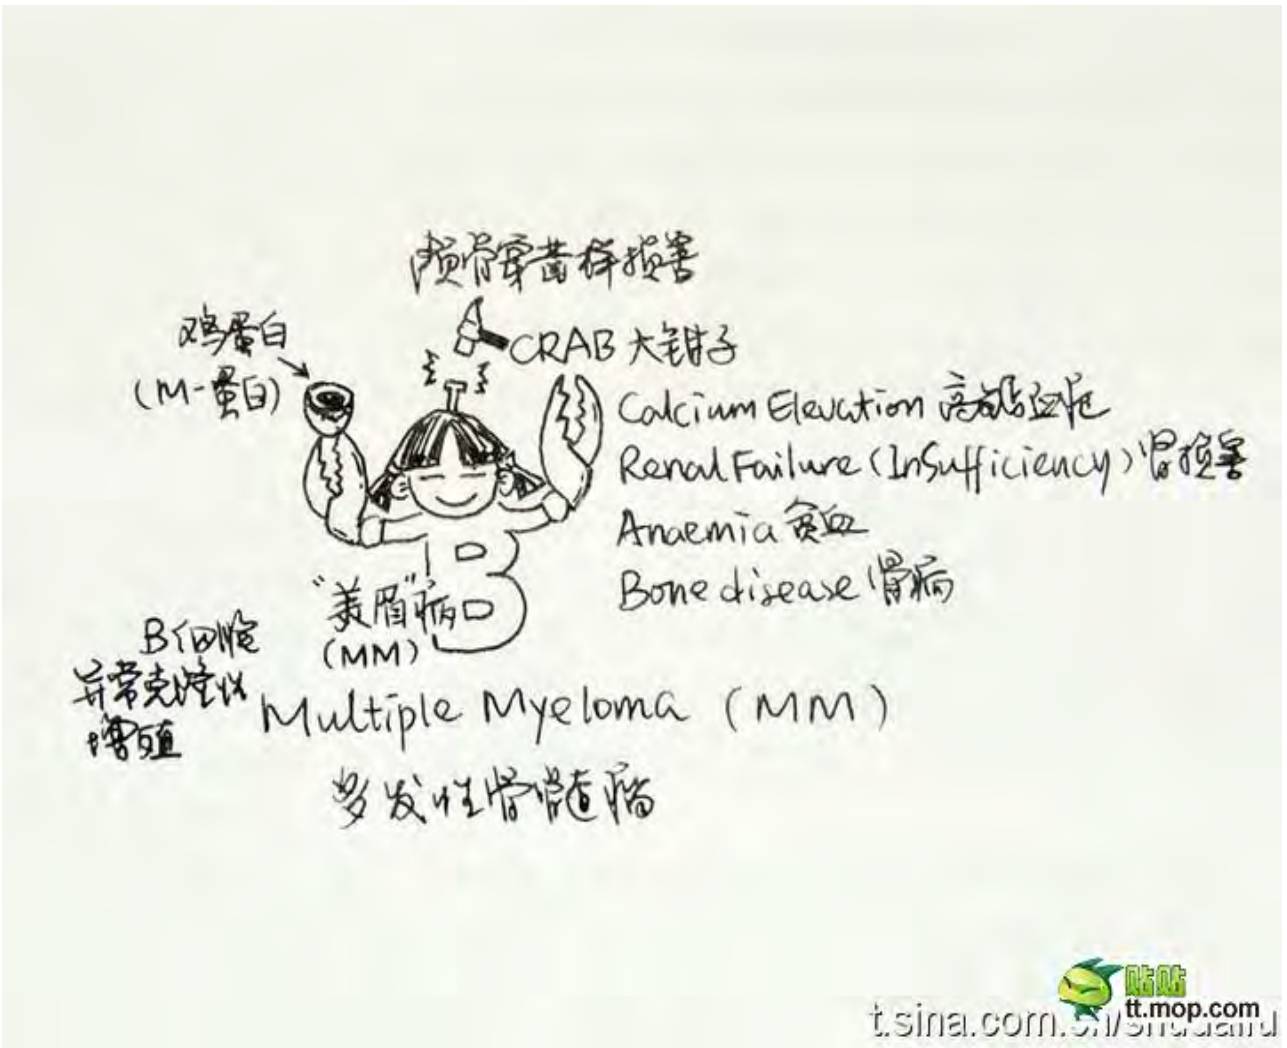 颅骨穿凿样损害
鸡蛋白
(M-蛋白)
CRAB 大钳子
Calcium Elevation 高钙血症
Renal Failure (Insufficiency) 肾损害
Anaemia 贫血
Bone disease 骨病
B
"美眉"病
(MM)
B细胞
异常克隆性
增殖
Multiple Myeloma (MM)
多发性骨髓瘤
贴贴
tt.mop.com
t.sina.com.cn/